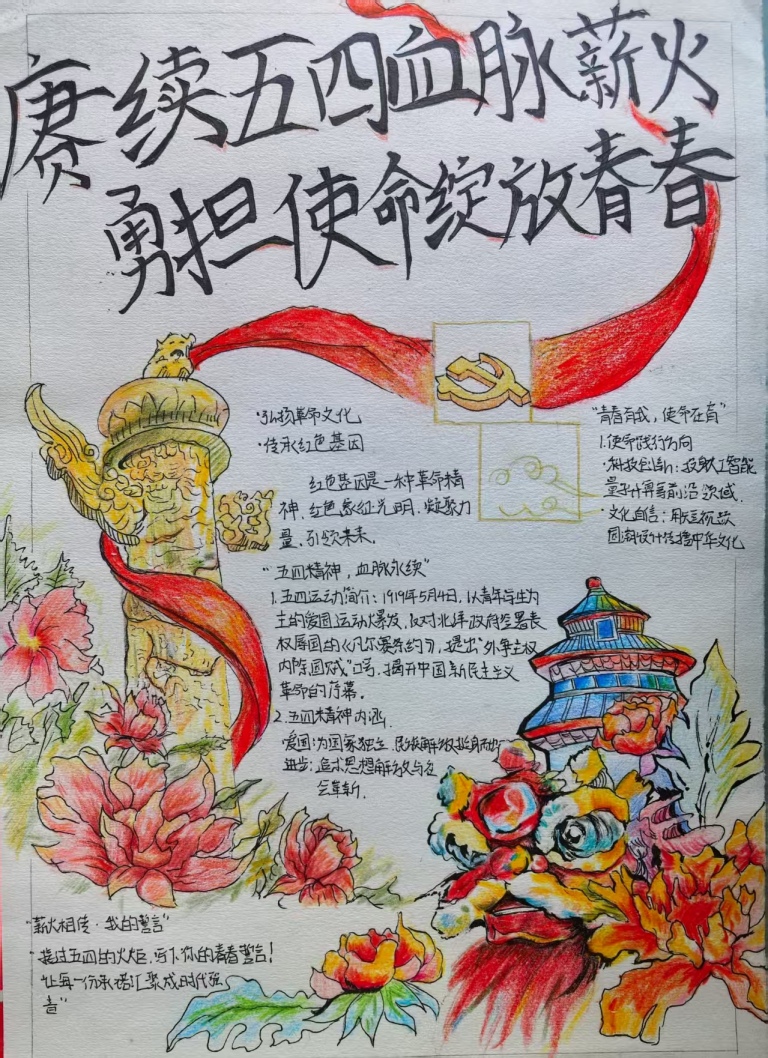 赓续五四血脉薪火
勇担使命绽放青春
·弘扬革命文化
·传承红色基因
红色基因是一种革命精
神,红色象征光明,凝聚力
量,引领未来.
"青春有我,使命在肩"
1.使命践行方向
·科技创新:投身人工智能
量子计算等前沿领域.
·文化自信:用短视频
国潮设计传播中华文化
"五四精神,血脉永续"
1.五四运动简介:1919年5月4日,以青年学生为
主的爱国运动爆发,反对北洋政府签署丧
权辱国的《凡尔赛条约》,提出"外争主权
内除国贼"口号,揭开中国新民主主义
革命的序幕.
2.五四精神内涵.
·爱国:为国家独立,民族解放挺身而出
进步:追求思想解放与社
会革新.
"薪火相传·我的誓言"
接过五四的火炬,写下你的青春誓言!
让每一份承诺汇聚成时代强
音"